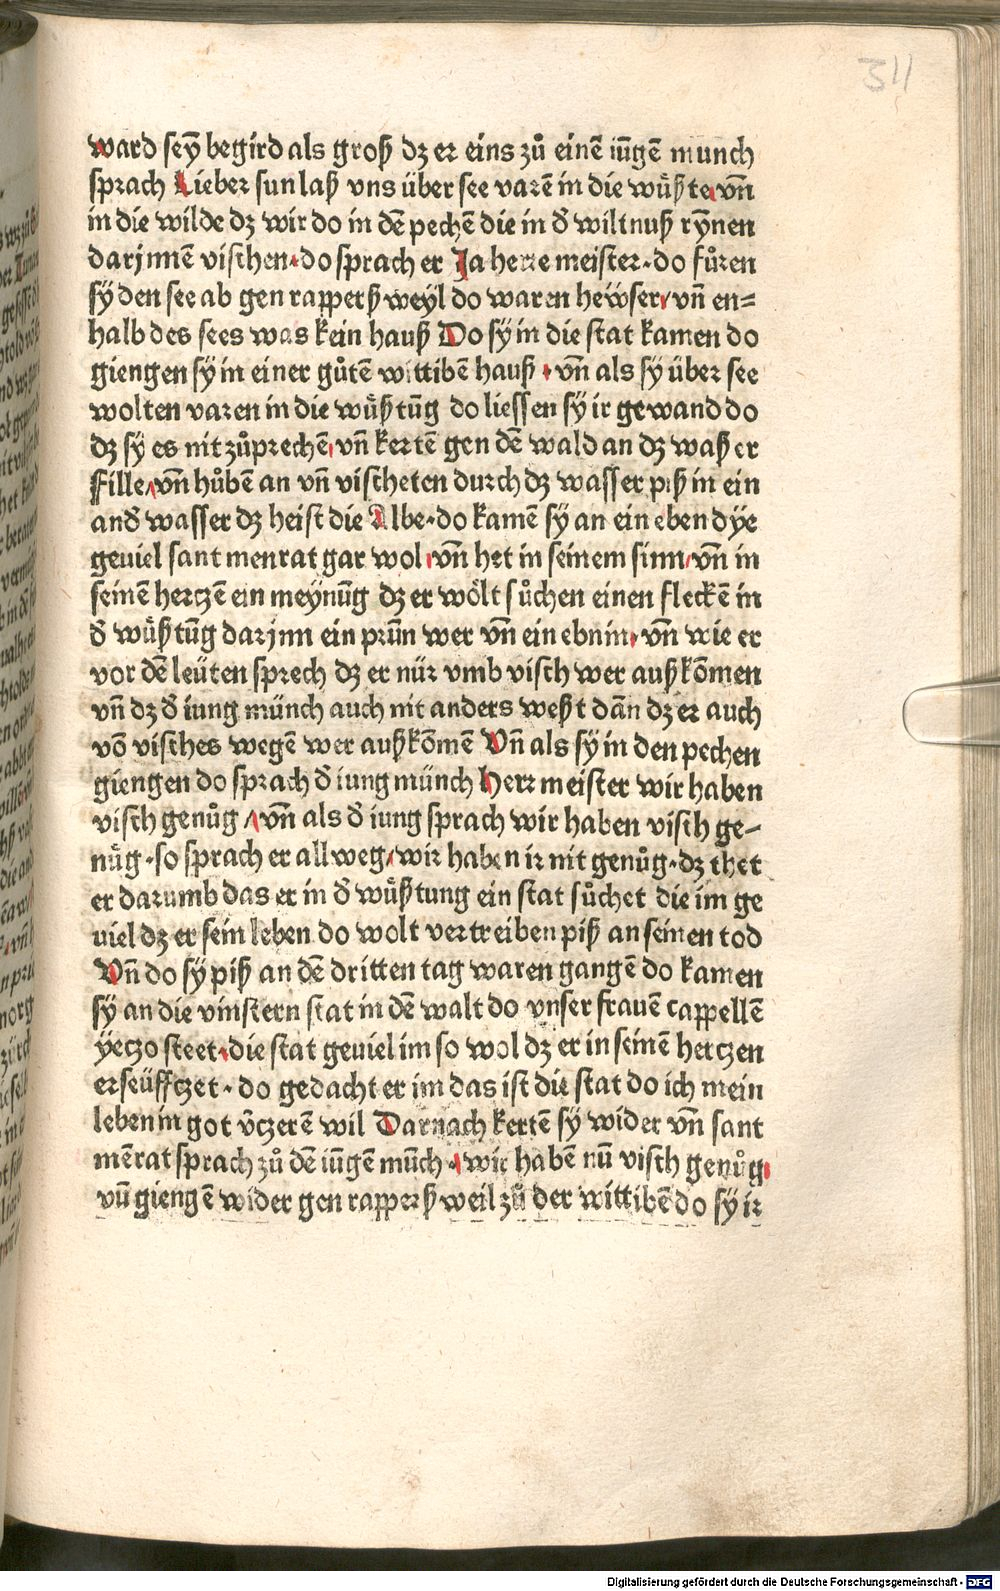 311
ward sey̅ begird als groß dz er eins zů eine̅ iu̅ge̅ munch
sprach Lieber sun laß vns über see vare̅ in die wuͤßte, vn̅
in die wilde dz wir do in de̅ peche̅ die in d̕ wiltnuß rẏnen
darjnne̅ vischen. do sprach er Ja herre meister. do fůren
sy den see ab gen rapperßweyl do waren heẅser, vn̅ en=
halb des sees was kein hauß Do sy in die stat kamen do
giengen sy in einer gůte̅ wittibe̅ hauß. vn̅ als sy über see
wolten varen in die wuͤßtu̅g do liessen sy ir gewand do
dz sy es nit zůpreche̅, vn̅ kerte̅ gen de̅ wald an dz waßer
Fille, vn̅ hůbe̅ an vn̅ vischeten durch dz wasser piß in ein
and̕ wasser dz heist die Albe. do kame̅ sy an ein eben dye
geuiel sant menrat gar wol, vn̅ het in seinem sinn, vn̅ in
seine̅ hertze̅ ein meynu̅g dz er woͤlt sůchen einen flecke̅ in
d̕ wuͤßtu̅g darjnn ein pru̅n wer vn̅ ein ebnin, vn̅ wie er
vor de̅ leüten sprech dz er nür vmb visch wer außko̅men
vn̅ dz d̕ iung münch auch nit anders weßt da̅n dz er auch
vo̅ visches wege̅ wer außko̅me̅ Vn̅ als sy in den pechen
giengen do sprach d̕ iung münch Herr meister wir haben
visch genůg, vn̅ als d̕ iung sprach wir haben visch ge-
nůg. so sprach er allweg, wir haben ir nit genůg. dz thet
er darumb das er in d̕ wuͤßtung ein stat sůchet die im ge
uiel dz er sein leben do wolt vertreiben piß an seinen tod
Vn̅ do sy piß an de̅ dritten tag waren gange̅ do kamen
sy an die vinstern stat in de̅ walt do vnser fraue̅ cappelle̅
yeczo steet, die stat geuiel im so wol dz er in seine̅ hertczen
erseüffczet. do gedacht er im das ist die stat do ich mein
leben in got v̕czere̅ wil Darnach kerte̅ sy wider vn̅ sant
me̅rat sprach zů de̅ iu̅ge̅ mu̅ch. wir habe̅ nu̅ visch genůg,
vn̅ gienge̅ wider gen rapperßweil zů der wittibe̅ do sy ir
Digitalisierung gefördert durch die Deutsche Forschungsgemeinschaft - DFG